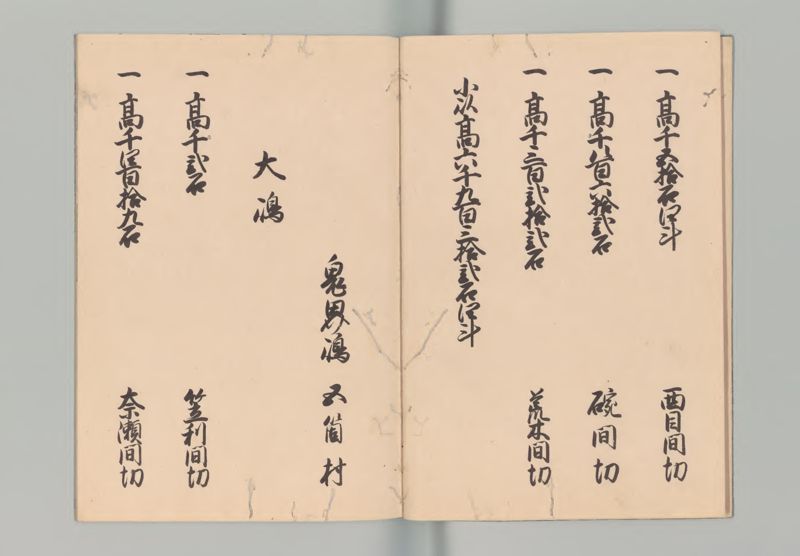 一 高千五拾石四斗 西目間切
一 高千八百六拾弐石 碗間切
一 高千三百弐拾弐石 荒木間切
小以高六千九百三拾弐石四斗
鬼界嶋 五箇村
大嶋
一 高千弐石 笠利間切
一 高千四百拾九石 奈瀬間切